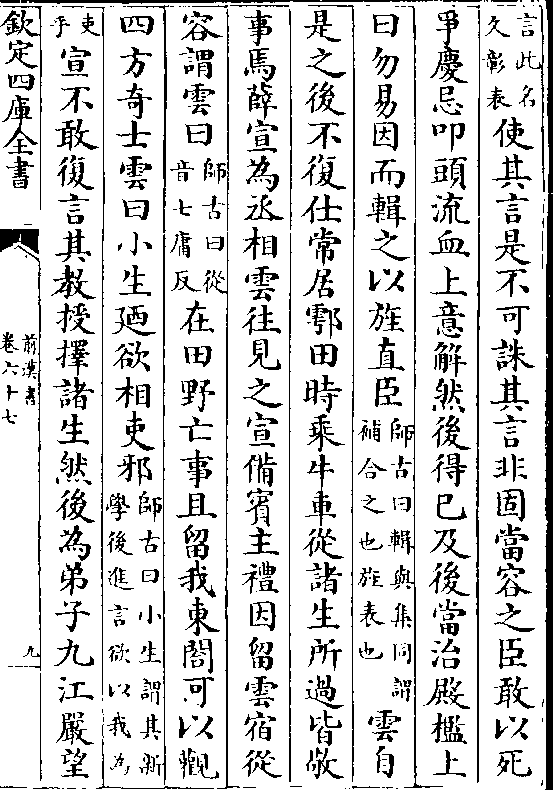 言此名
久彰表
使其言是不可誅其言非固當容之臣敢以死
爭慶忌叩頭流血上意解然後得已及後當治殿檻上
曰勿易因而輯之以旌直臣
師古曰輯與集同謂
補合之也旌表也
雲自
是之後不復仕常居鄠田時乘牛車從諸生所過皆敬
事焉薛宣為丞相雲往見之宣備賓主禮因留雲宿從
容謂雲曰
師古曰從
音七庸反
在田野亡事且留我東閤可以觀
四方奇士雲曰小生廼欲相吏邪
師古曰小生謂其新
學後進言欲以我為
吏
乎
宣不敢復言其教授擇諸生然後為弟子九江嚴望
欽定四庫全書
前漢書
卷六十七
九